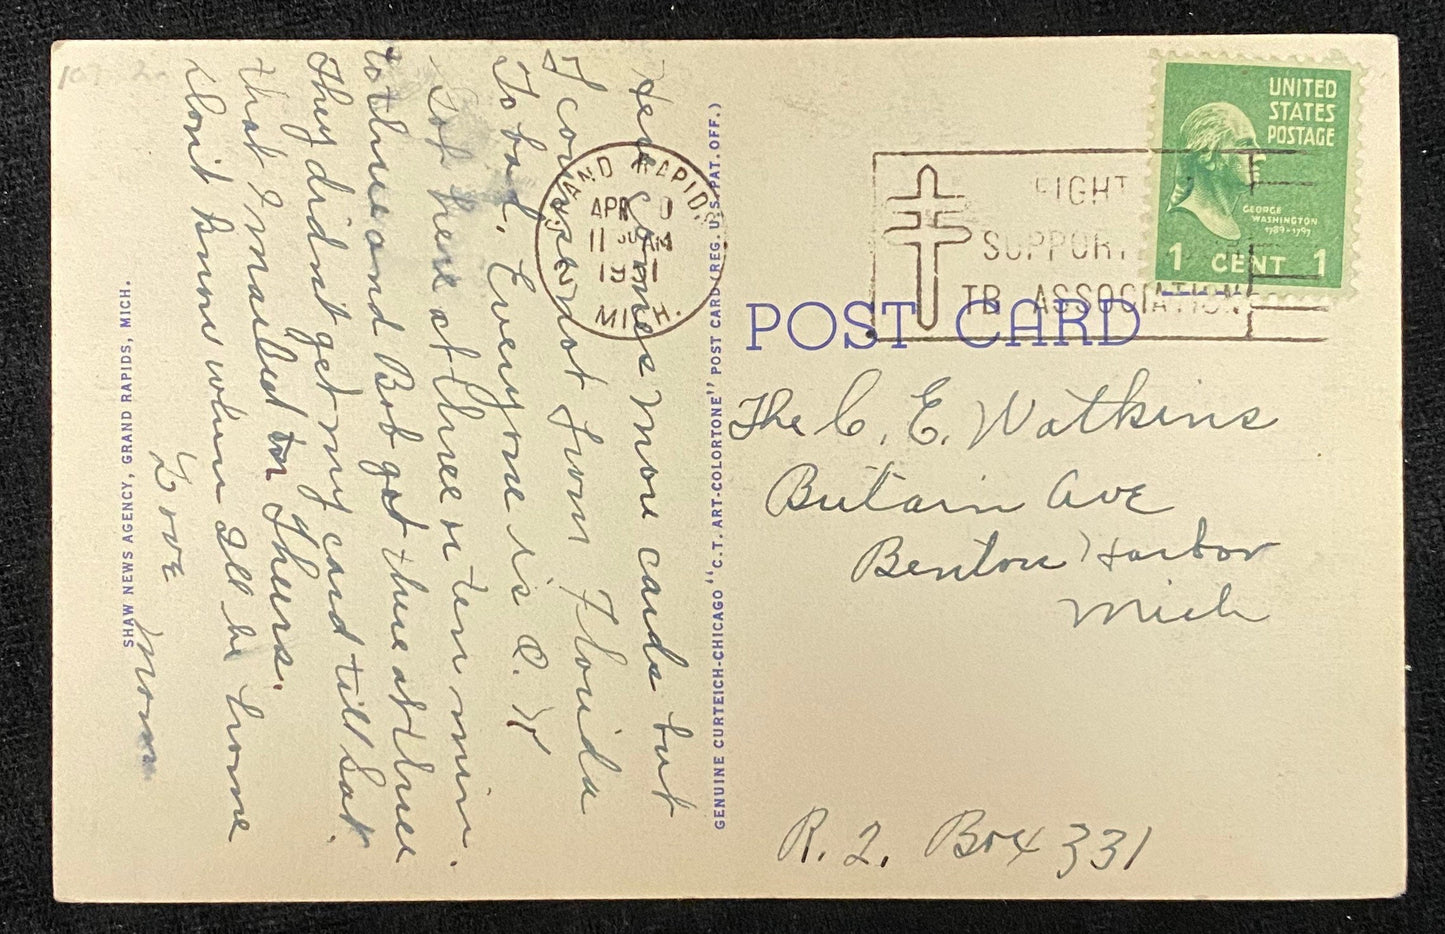 Here Comes more cards but
I come not from Florida
To bad, Everyone is O.K
Got here at three or ten min.
to three and Bob got there at three
They didnt get my card till Sat.
that I mailed on Thurs.
dont know when Ill be home
Love
Mom
SHAW NEWS AGENCY, GRAND RAPIDS, MICH.
GENUINE CURTEICH-CHICAGO "C.T. ART-COLORTONE" POST CARD (REG. U.S. PAT. OFF.)
GRAND RAPIDS
APR
11 30 AM
MICH.
FIGHT
SUPPORT
TB ASSOCIATION
UNITED
STATES
POSTAGE
GEORGE
WASHINGTON
1789-1797
1 CENT 1
POST CARD
The C. E. Watkins
Britain Ave
Benton Harbor
Mich
R. 2. Box 331